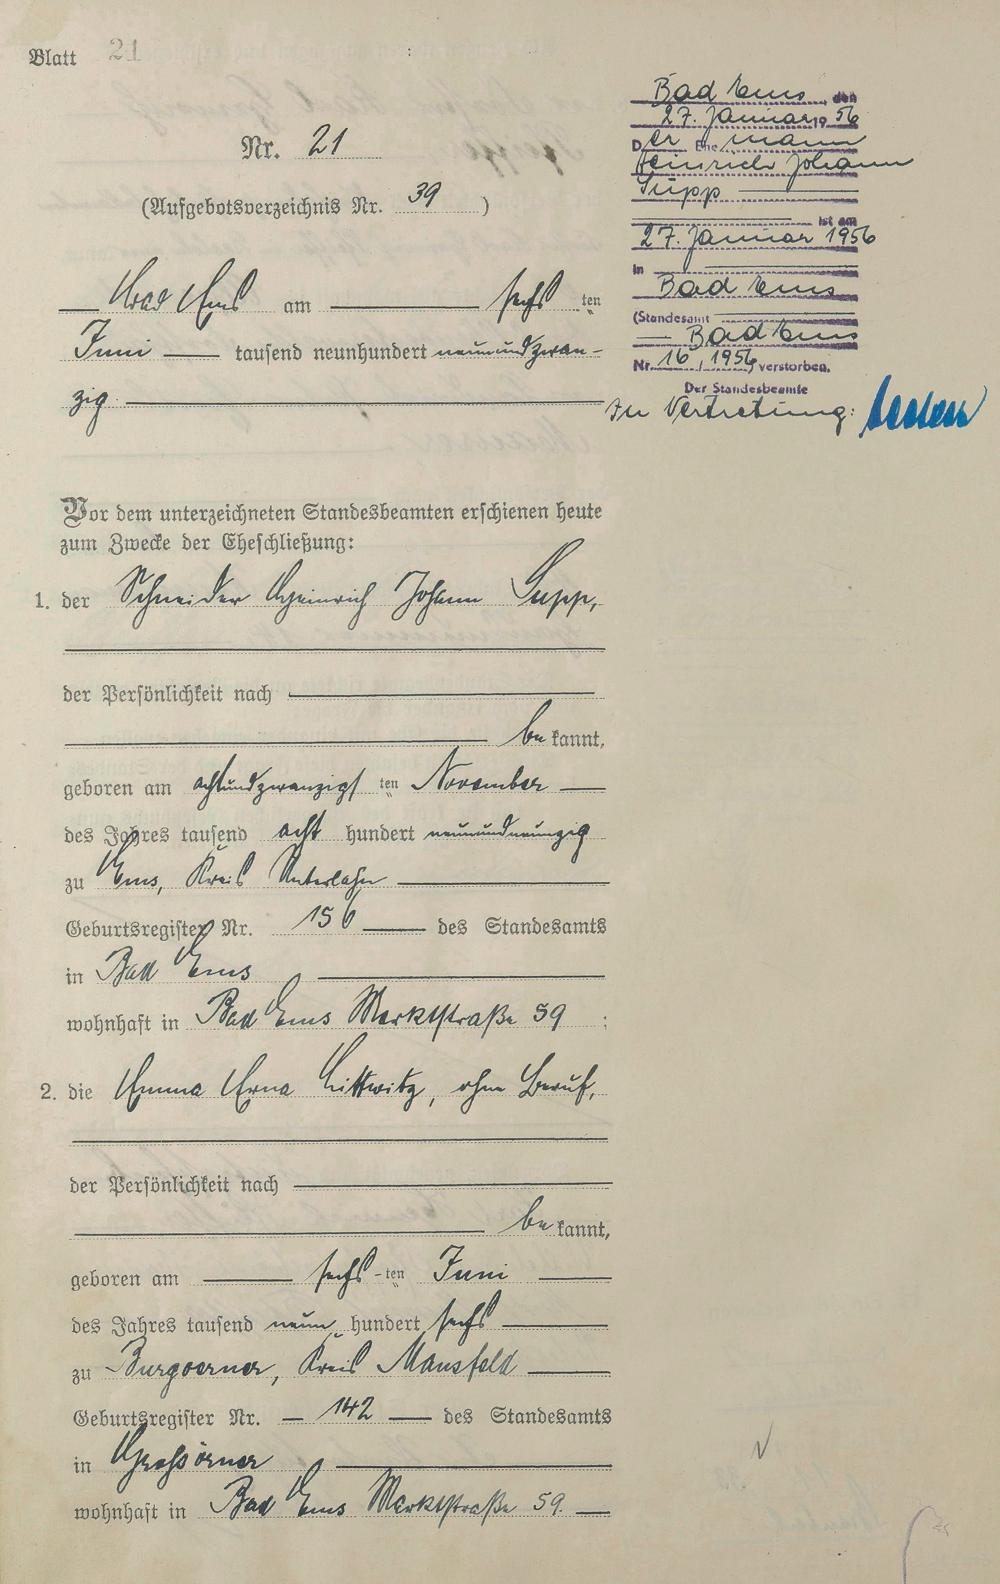 Blatt 21
Nr. 21
(Aufgebotsverzeichnis Nr. 39)
Bad Ems am sechs ten
Juni tausend neunhundert neunundzwan-
zig
Bad Ems, den
27. Januar 1956
Der Ehemann
Heinrich Johann
Supp
ist am
27. Januar 1956
in
Bad Ems
(Standesamt
Bad Ems
Nr. 16, 1956 verstorben.
Der Standesbeamte
In Vertretung:
Vor dem unterzeichneten Standesbeamten erschienen heute
zum Zwecke der Eheschließung:
1. der Schneider Heinrich Johann Supp,
der Persönlichkeit nach
be kannt,
geboren am achtundzwanzigs ten November
des Jahres tausend acht hundert neunundneunzig
zu Ems, Kreis Unterlahn
Geburtsregister Nr. 156 des Standesamts
in Bad Ems
wohnhaft in Bad Ems Marktstraße 59 ;
2. die Emma Erna Littwitz, ohne Beruf,
der Persönlichkeit nach
be kannt,
geboren am sechs -ten Juni
des Jahres tausend neun hundert sechs
zu Burgoerner, Kreis Mansfeld
Geburtsregister Nr. 142 des Standesamts
in Grossörner
wohnhaft in Bad Ems Marktstraße 59.